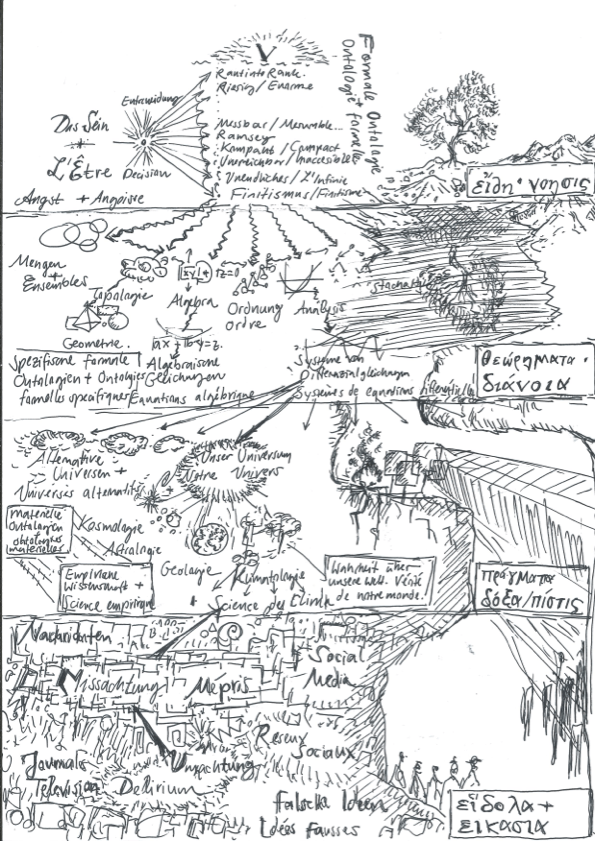 V
Formale Ontologie
+
Ontologie formelle
Riesig / Enorme
Entscheidung
Das Sein
+
L'Être
Decision
Angst + Angoisse
Messbar / Mesurable
Ramsey
Kompakt / Compact
Unerreichbar / Inaccessible
Unendliches / L'Infinie
Finitismus / Finitisme
εἴδη · νοησις
Mengen
+
Ensembles
Topologie
Algebra
Ordnung
ordre
Analysis
Geometrie
Spezifische formale
Ontologien + Ontologies
formelles specifiques
Algebraische
Gleichungen
Equations algébrique
Systeme von
Differenzialgleichungen
Systèmes de equations differentielles
θεωρηματα ·
διάνοια
Alternative
Universen +
Universes alternatifs
Unser Universum
Notre Univers
materielle
Ontologien
ontologies
materielles
Kosmologie
Astrologie
Geologie
Klimatologie
+ Science du Climat
Empirische
Wissenschaft +
Science empirique
Wahrheit über
unsere Welt. Vérité
de notre monde.
πράγματα
δόξα/πίστις
Nachrichten
Social
Media
Missachtung
Mépris
Reseux
Sociaux
Journals
Television
Delirium
Falsche Ideen
Idées Fausses
εἴδολα +
εικασια